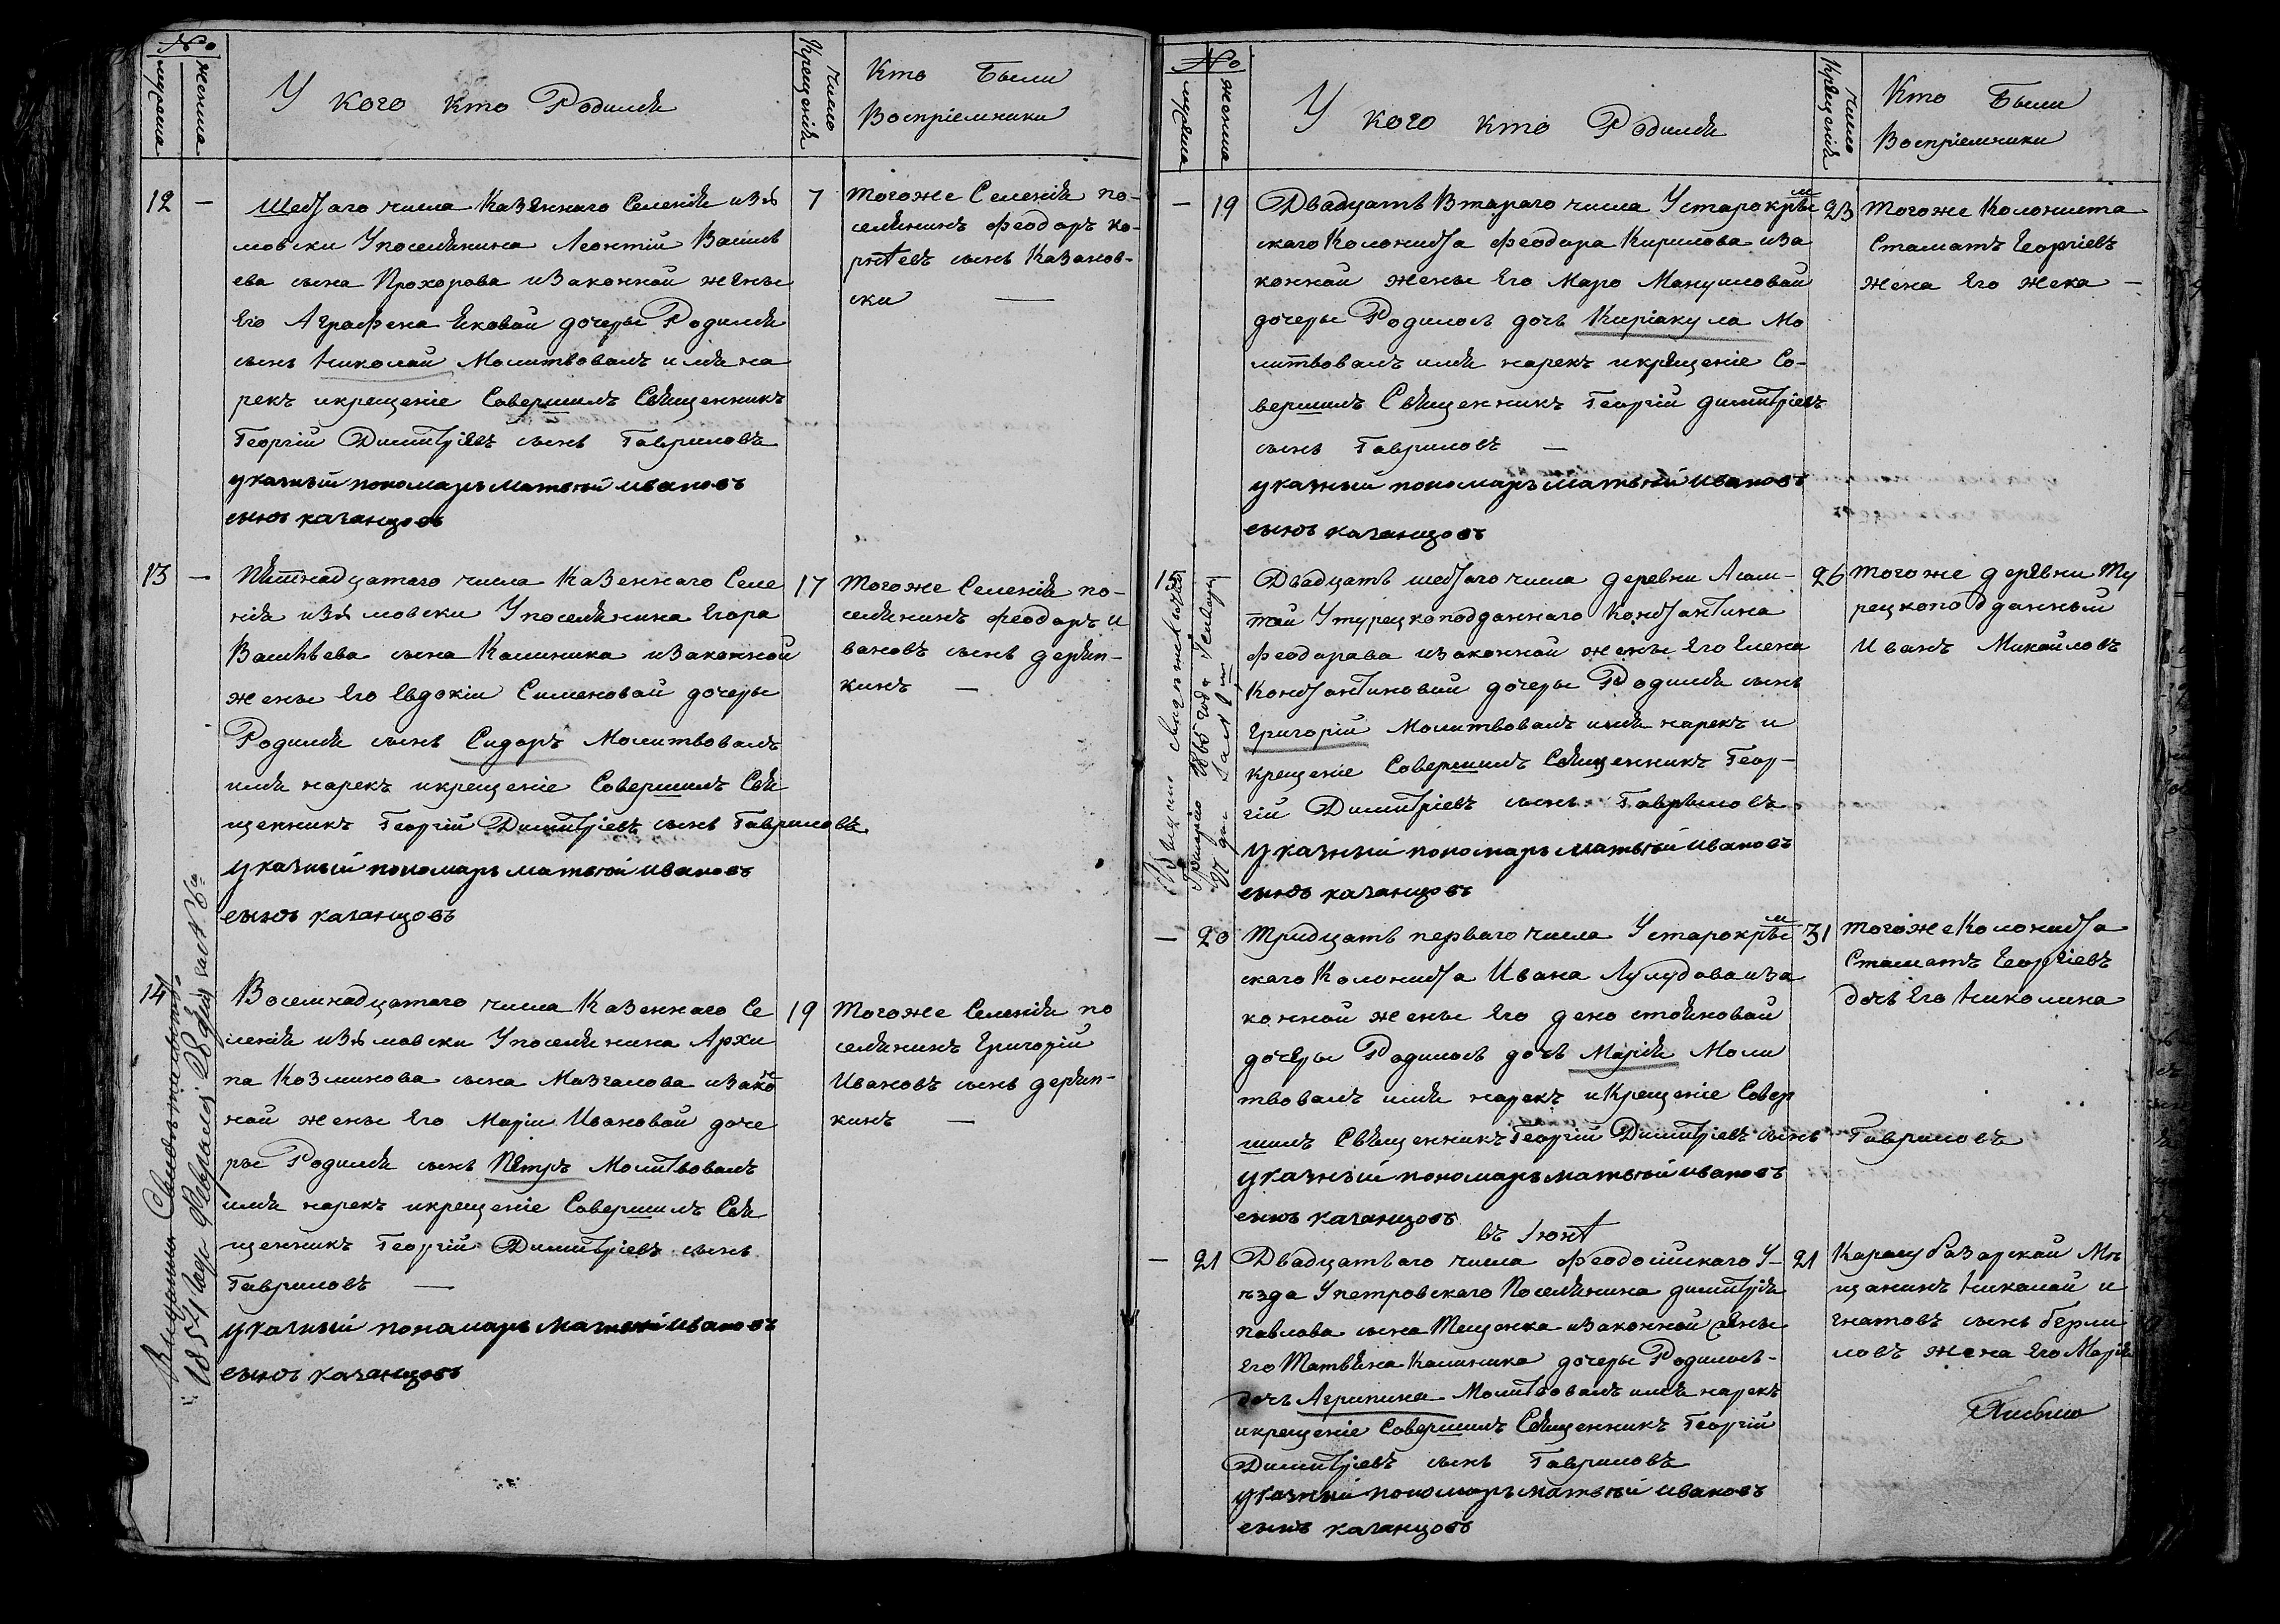 №
мужеска
женска
У кого кто Родился
число
Крещенія
Кто Были
Воспріемники
12 —
Шестаго числа Казеннаго Селенія изю
мовски Упоселянина Леонтій Василь
ева сына Прохорова изаконной жены
Его Аграфена Яковой дочеры Родился
сынъ Николай Молитвовалъ имя на
рекъ икрещеніе Совершилъ Священникъ
Георгій Димитріевъ сынъ Гавриловъ
указный пономарь матвей ивановъ
сынъ казанцовъ
7
тогоже Селенія по-
селянинъ феодоръ ко-
сынъ Казанов-
ски —
13 —
Пятнадцатаго числа Казеннаго Селе
нія изюмовски Упоселянина Егора
Васильева сына Калиника изаконной
жены Его Евдокіи Сименовой дочеры
Родился сынъ Сидоръ Молитвовалъ
имя нарекъ икрещеніе Совершилъ Свя
щенникъ Георгій Димитріевъ сынъ Гавриловъ
указный пономарь матвей ивановъ
сынъ казанцовъ
17
Тогоже Селенія по-
селянинъ феодоръ и
вановъ сынъ деряп-
кинъ —
14
Восемнадцатаго числа Казеннаго Се
ленія изюмовски Упоселянина Архи
па Козминова сына Мазгалова изако
ной жены Его Маріи Ивановой доче
ры Родился сынъ Петръ Молитвовалъ
имя нарекъ икрещеніе Совершилъ Свя
щенникъ Георгій Димитріевъ сынъ
Гавриловъ —
указный пономарь матвей ивановъ
сынъ казанцовъ
19
Тогоже Селенія по
селянинъ Григорій
Ивановъ сынъ деряп-
кинъ —
Свидетельство
1854 года Февраля 28 дня за №
№
мужска
женска
У кого кто Родился
число
Крещенія
Кто Были
Воспріемники
— 19
Двадцать Втараго числа Устарокрым
скаго Колониста феодора Кирилова иза
конной жены Его Маро Мануиловай
дочеры Родилось дочь Киріакула Мо
литвовалъ имя нарекъ икрещеніе Со-
вершилъ Священникъ Георгій димитріевъ
сынъ Гавриловъ —
указный пономарь матвей ивановъ
сынъ казанцовъ
23
Тогоже Колониста
Стаматъ Георгіевъ
жена Его жека —
15
Двадцать шестаго числа деревни
Утурецкоподданнаго Константина
феодарава изаконной жены Его Елена
Константиновай дочеры Родился сынъ
Григорій Молитвовалъ имя нарекъ и
крещеніе Совершилъ Священникъ Геор-
гій Димитріевъ сынъ Гавриловъ
указный пономарь матвей ивановъ
сынъ казанцовъ
26
Тогоже деревни Ту
рецкоподданный
Иванъ Михайловъ
Григорію 1865 года Генваря
— 20
Тридцать перваго числа Устарокрым
скаго Колониста Ивана Лулудова иза
конной жены Его дено стояновай
дочеры Родилось дочь Марія Моли
твовалъ имя нарекъ иКрещеніе Совер
шилъ Священникъ Георгій Димитріевъ сынъ Гавриловъ
указный пономарь матвей ивановъ
сынъ казанцовъ
31
тогоже Колониста
Стаматъ Георгіевъ
дочь Его Николина
въ Іюнѣ
— 21
Двадцатваго числа феодосійскаго У-
ѣзда Упетровскаго Поселянина димитрія
павлова сына Тещенка изаконной жены
Его Татвяна Калиника дочеры Родилось-
дочъ Агрипина Молитвовалъ имя нарекъ
икрещеніе Совершилъ Священникъ Георгій
Димитріевъ сынъ Гавриловъ
указный пономарь матвей ивановъ
сынъ казанцовъ
21
Карасубазарскай Мѣ
щанинъ Николай и
гнатовъ сынъ
жена Его Марія